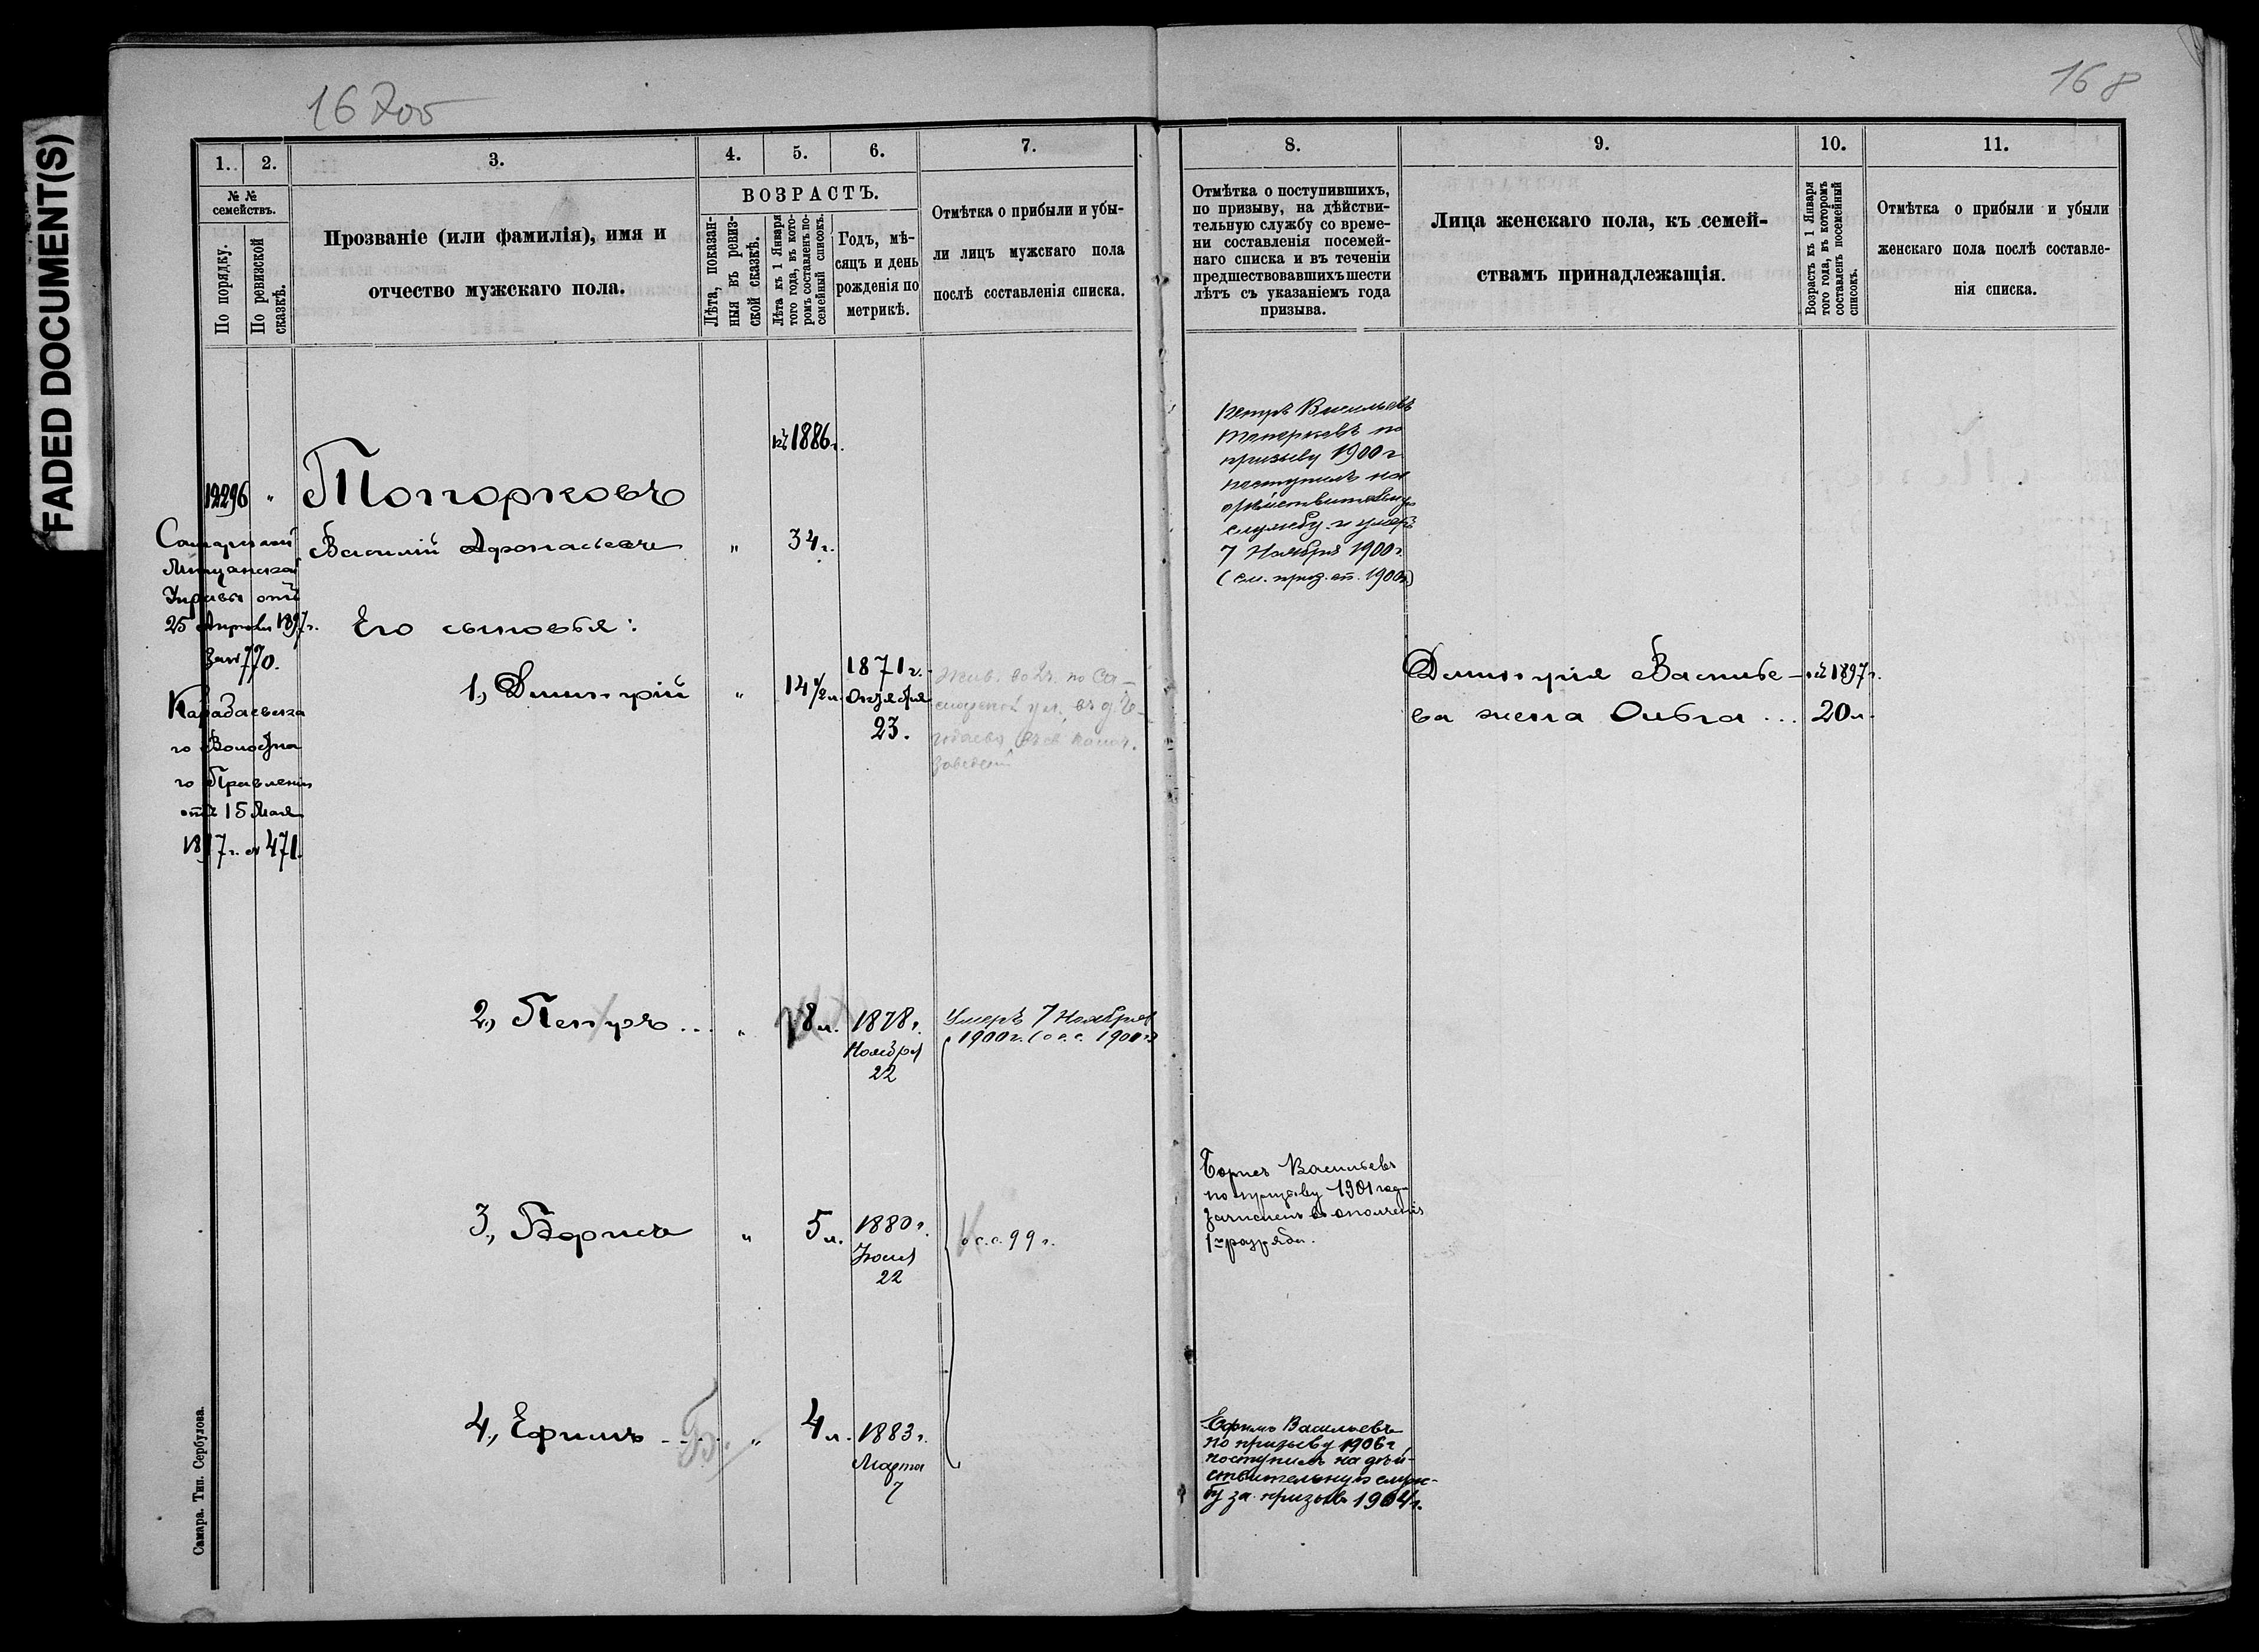 FADED DOCUMENT(S)
168
1.
2.
3.
4.
5.
6.
7.
№ №
семействъ.
По порядку.
По ревизской
сказкѣ.
Прозваніе (или фамилія), имя и
отчество мужскаго пола.
ВОЗРАСТЪ.
Лѣта, показан-
ныя въ ревиз-
ской сказкѣ.
Лѣта къ 1 Января
того года, въ кото-
ромъ составленъ по-
семейный списокъ.
Годъ, мѣ-
сяцъ и день
рожденія по
метрикѣ.
Отмѣтка о прибыли и убы-
ли лицъ мужскаго пола
послѣ составленія списка.
къ 1886 г.
12296 " Топорковъ
Самарской
Мѣщанской
Управы отъ
25 Апрѣля 1897 г.
за № 770.
Карабаевска
го Волостна
го Правленія
отъ 15 Мая
1897 г. № 471.
Василій Афонасьевъ " 34 г.
Его сыновья:
1., Дмитрій " 14 1/2 л. 1871 г.
Октября
23.
Жив. во 2 ч. по Са-
2., Петръ ... " 8 л. 1878 г.
Ноября
22
Умеръ 7 Ноября
1900 г. (о с.с. 1900 г.)
3., Борисъ " 5 л. 1880 г.
Іюля
22
о с.с. 99 г.
4., Ефимъ .... Б. " 4 л. 1883 г.
Марта
7
Самара. Тип. Сербулова.
8.
9.
10.
11.
Отмѣтка о поступившихъ,
по призыву, на дѣйстви-
тельную службу со време-
ни составленія посемей-
наго списка и въ теченіи
предшествовавшихъ шести
лѣтъ съ указаніемъ года
призыва.
Лица женскаго пола, къ семей-
ствамъ принадлежащія.
Возрастъ къ 1 Января
того года, въ которомъ
составленъ посемейный
списокъ.
Отмѣтка о прибыли и убыли
женскаго пола послѣ составле-
нія списка.
Петръ Васильевъ
Топорковъ по
призыву 1900 г.
поступилъ на
дѣйствительную
службу и умеръ
7 Ноября 1900 г.
(см. приз. сп. 1900 г.)
Дмитрія Василье- къ 1897 г.
ва жена Ольга ... 20 л.
Борисъ Васильевъ
по призыву 1901 года
зачисленъ въ ополченіе
1го разряда.
Ефимъ Васильевъ
по призыву 1906 г.
поступилъ на дѣй-
ствительную служ-
бу за призывъ 1904 г.